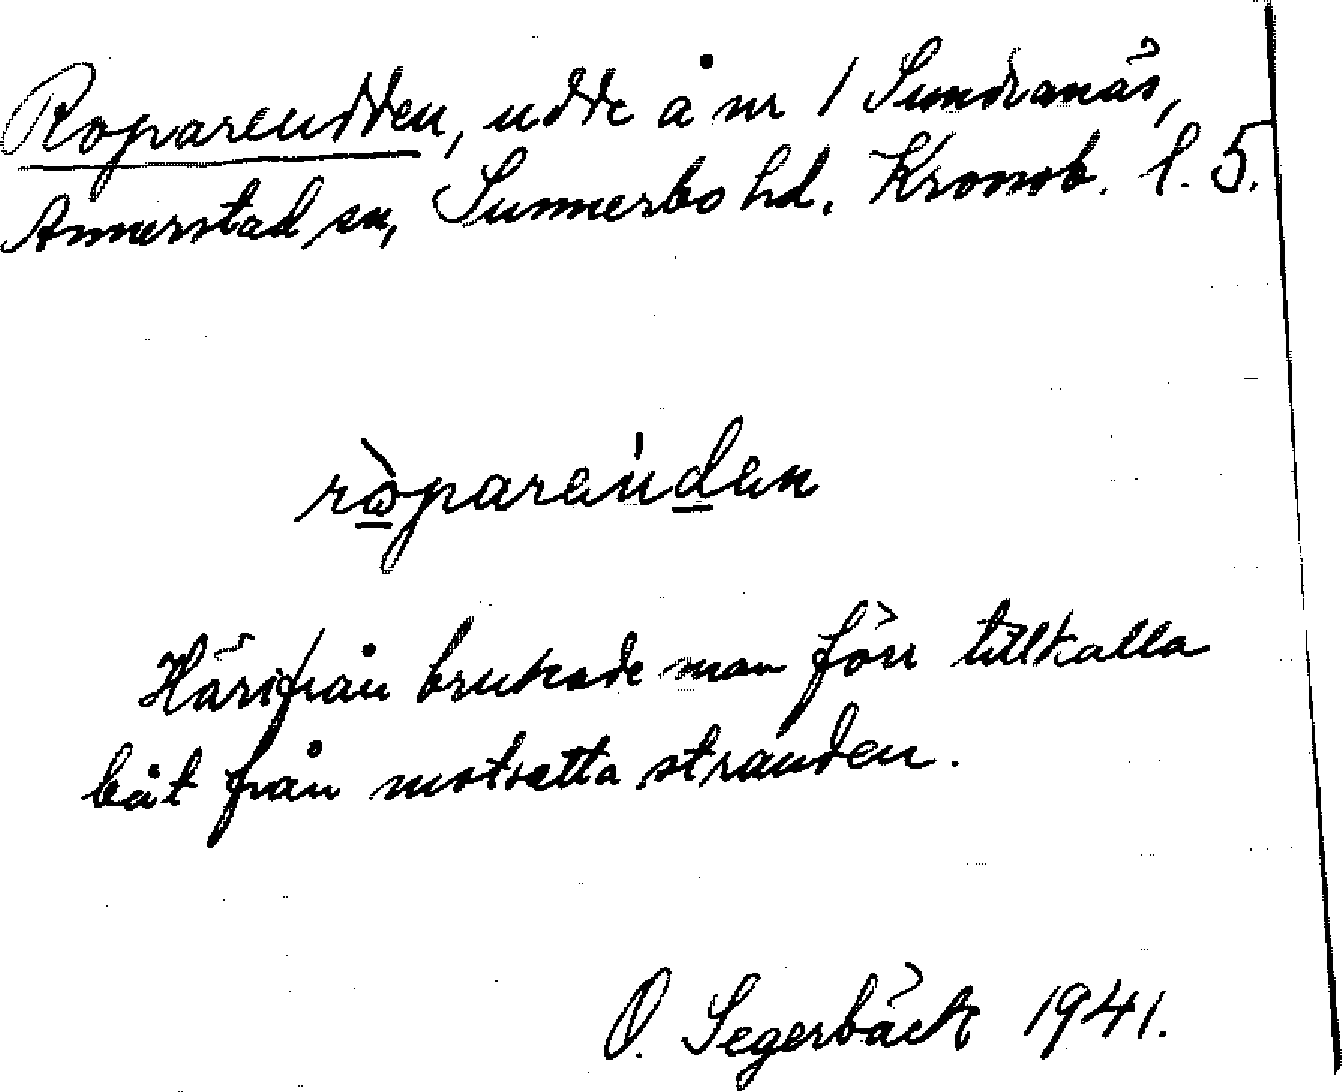 Ropareudden, udde å nr 1 Sundranäs,
Annerstad sn, Sunnerbo hd. Kronob. l. 5.
ròpareuden
Härifrån brukade man förr tillkalla
båt från motsatta stranden.
O. Segerbäck 1941.